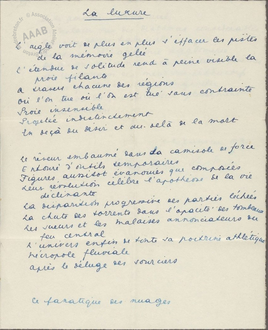 La luxure
L'aigle voit de plus en plus s'effacer les pistes
de la mémoire gelée
L'étendue de solitude rend à peine visible la
proie filante
A travers chacune des régions
où l'on tue où l'on est tué sans contrainte
Proie insensible
Projetée indistinctement
En deçà du désir et au delà de la mort
Le rêveur embaumé dans la camisole de force
Entouré d'outils temporaires
Figures aussitôt évanouies que composées
Leur révolution célèbre l'apothéose de la vie
déclinante
La disparition progressive des parties léchées
La chute des torrents dans l'opacité des tombeaux
Les sueurs et les malaises annonciateurs du
feu central
L'univers enfin de toute sa poitrine athlétique
Nécropole fluviale
après le déluge des sourciers
Ce fanatique des nuages
AAAB